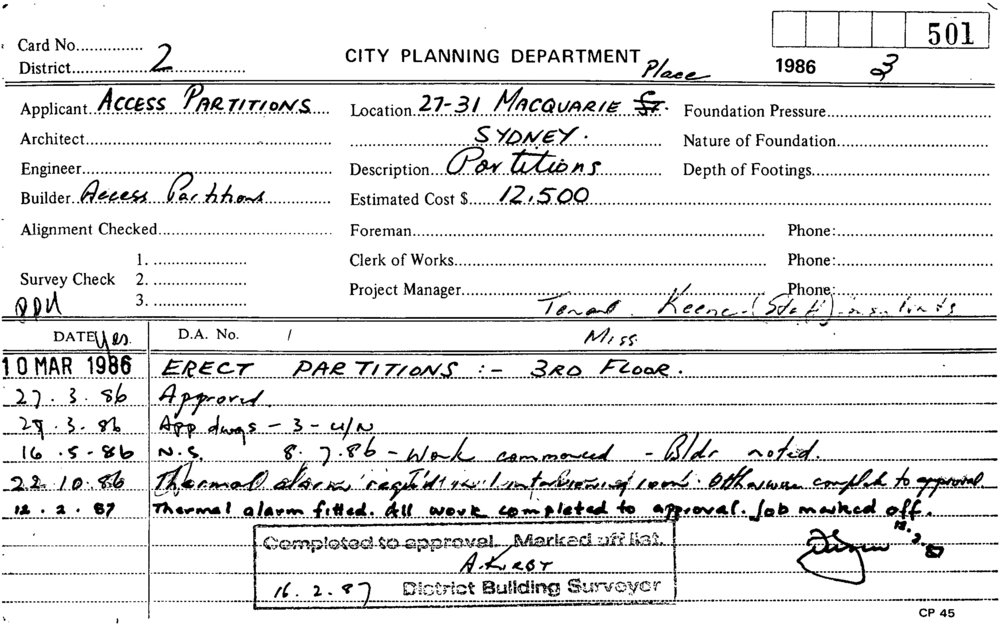 501
Card No. 2
District
CITY PLANNING DEPARTMENT
1986 3
Place
Applicant ACCESS PARTITIONS Location 27-31 MACQUARIE St. Foundation Pressure
Architect SYDNEY. Nature of Foundation
Engineer Description Partitions Depth of Footings
Builder Access Partitions Estimated Cost $ 12,500
Alignment Checked Foreman Phone:
1. Clerk of Works Phone:
Survey Check 2.
3. Project Manager Phone:
Tenant Keene (Staff)
DATE Yes. D.A. No. / Miss
10 MAR 1986 ERECT PARTITIONS :- 3RD FLOOR.
27.3.86 Approved
App dwgs - 3 - U/N
16.5-86 N.S. 8.7.86 - Work commenced - Bldr noted.
22.10.86 Thermal alarm reqd in 1 interviewing room. Otherwise complete to approval
12.2.87 Thermal alarm fitted. All work completed to approval. Job marked off.
12.2.87
Completed to approval. Marked off list.
16.2.87 District Building Surveyor
CP 45